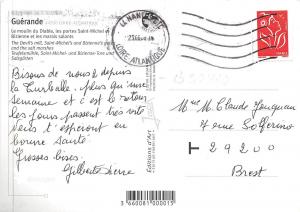 Guérande
Le moulin du Diable, les portes Saint-Michel et
Bizienne et les marais salants
The Devil's mill, Saint-Michel's and Bizienne's gates
and the salt marshes
Teufelsmühle, Saint-Michel- und Bizienne-Tore und
Salzgärten
LOIRE ATLANTIQUE
Bisous de nous 2 depuis
la Turballe. plus qu'une
semaine et c'est le retour
les jours passent très vite
vous t'espérons en
bonne santé
Grosses bises
Gilberte
Editions d'Art
Mme M. Claude
4 rue Solferino
T 29200
Brest
3 660081 000015